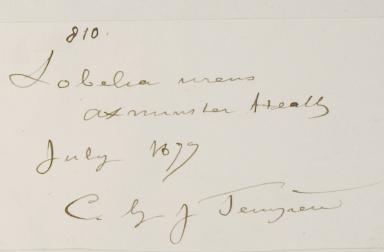 810.
Lobelia urens
Axminster Heath
July 1879
C. G. J.